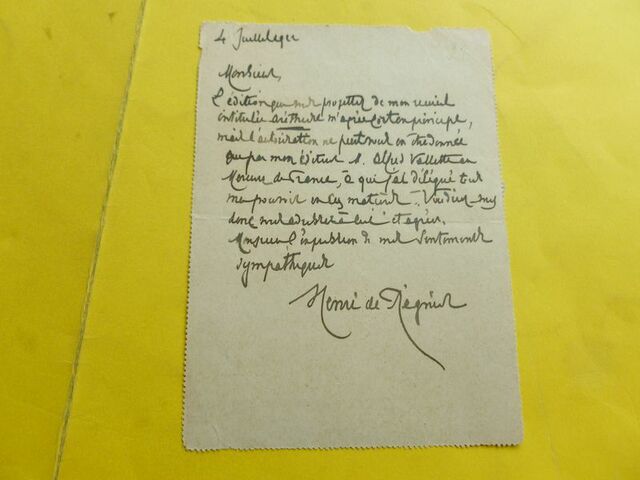 4 Juillet
Monsieur,
L'édition que vous projettez de mon recueil
intitulé Aréthuse m'agrée fort en principe,
mais l'autorisation ne peut vous en être donnée
que par mon éditeur M. Alfred Vallette au
Mercure de France, à qui j'ai délégué tout
mes pouvoirs en ces matières. Voudriez-vous
donc vous adresser à lui et agréer,
Monsieur l'expression de mes sentiments
sympathiques
Henri de Régnier